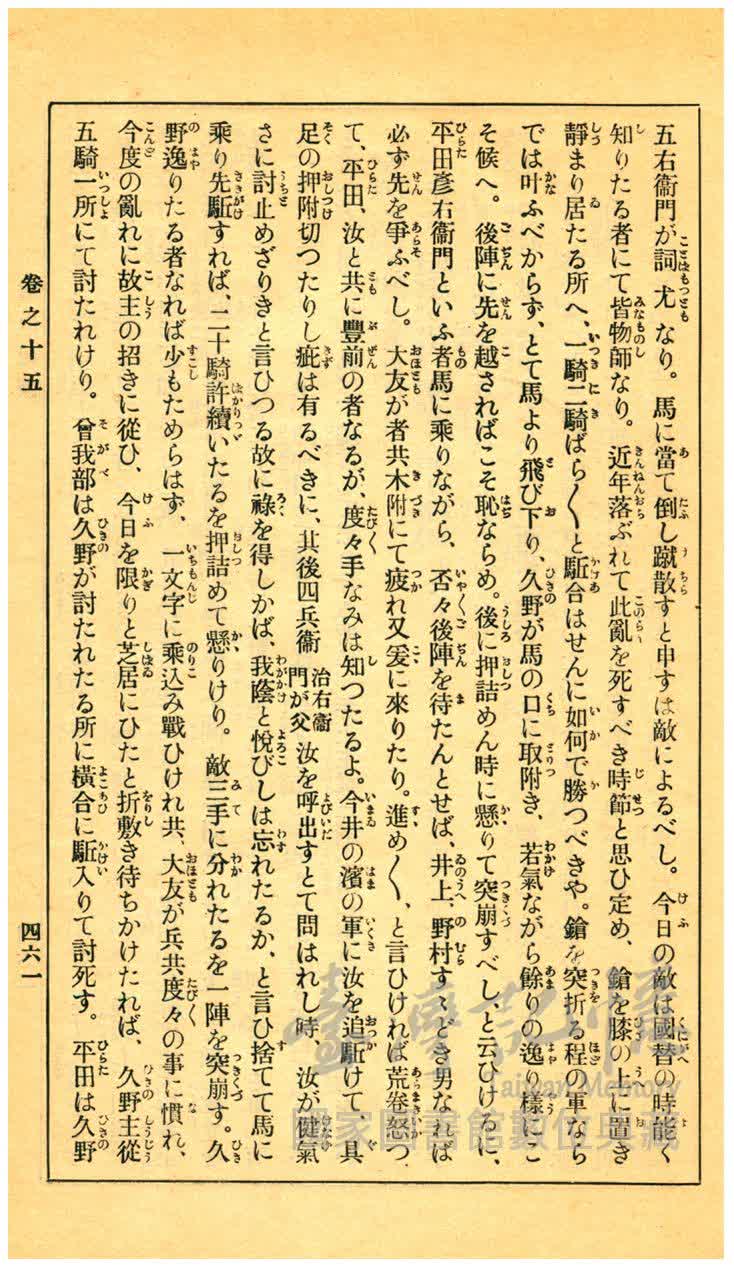 五右衞門が詞尤なり。馬に當て倒し蹴散すと申すは敵によるべし。今日の敵は國替の時能く
知りたる者にて皆物師なり。近年落ぶれて此亂を死すべき時節と思ひ定め、鎗を膝の上に置き
靜まり居たる所へ、一騎二騎ばら〱と駈合はせんに如何で勝つべきや。鎗を突折る程の軍なら
では叶ふべからず、とて馬より飛び下り、久野が馬の口に取附き、若氣ながら餘りの逸り樣にこ
そ候へ。後陣に先を越さればこそ恥ならめ。後に押詰めん時に懸りて突崩すべし、と云ひけるに、
平田彥右衞門といふ者馬に乘りながら、否々後陣を待たんとせば、井上、野村すゝどき男なれば
必ず先を爭ふべし。大友が者共木附にて疲れ又爰に來りたり。進め〱、と言ひければ荒卷怒つ
て、平田、汝と共に豐前の者なるが、度々手なみは知つたるよ。今井の濱の軍に汝を追駈けて、具
足の押附切つたりし疵は有るべきに、其後四兵衞治右衞門が父汝を呼出すとて問はれし時、汝が健氣
さに討止めざりきと言ひつる故に祿を得しかば、我蔭と悅びしは忘れたるか、と言ひ捨てて馬に
乘り先駈すれば、二十騎許續いたるを押詰めて懸りけり。敵三手に分れたるを一陣を突崩す。久
野逸りたる者なれば少もためらはず、一文字に乘込み戰ひけれ共、大友が兵共度々の事に慣れ、
今度の亂れに故主の招きに從ひ、今日を限りと芝居にひたと折敷き待ちかけたれば、久野主從
五騎一所にて討たれけり。曾我部は久野が討たれたる所に橫合に駈入りて討死す。平田は久野
卷之十五
四六一
臺灣記憶
Taiwan Memory
國家圖書館數位典藏